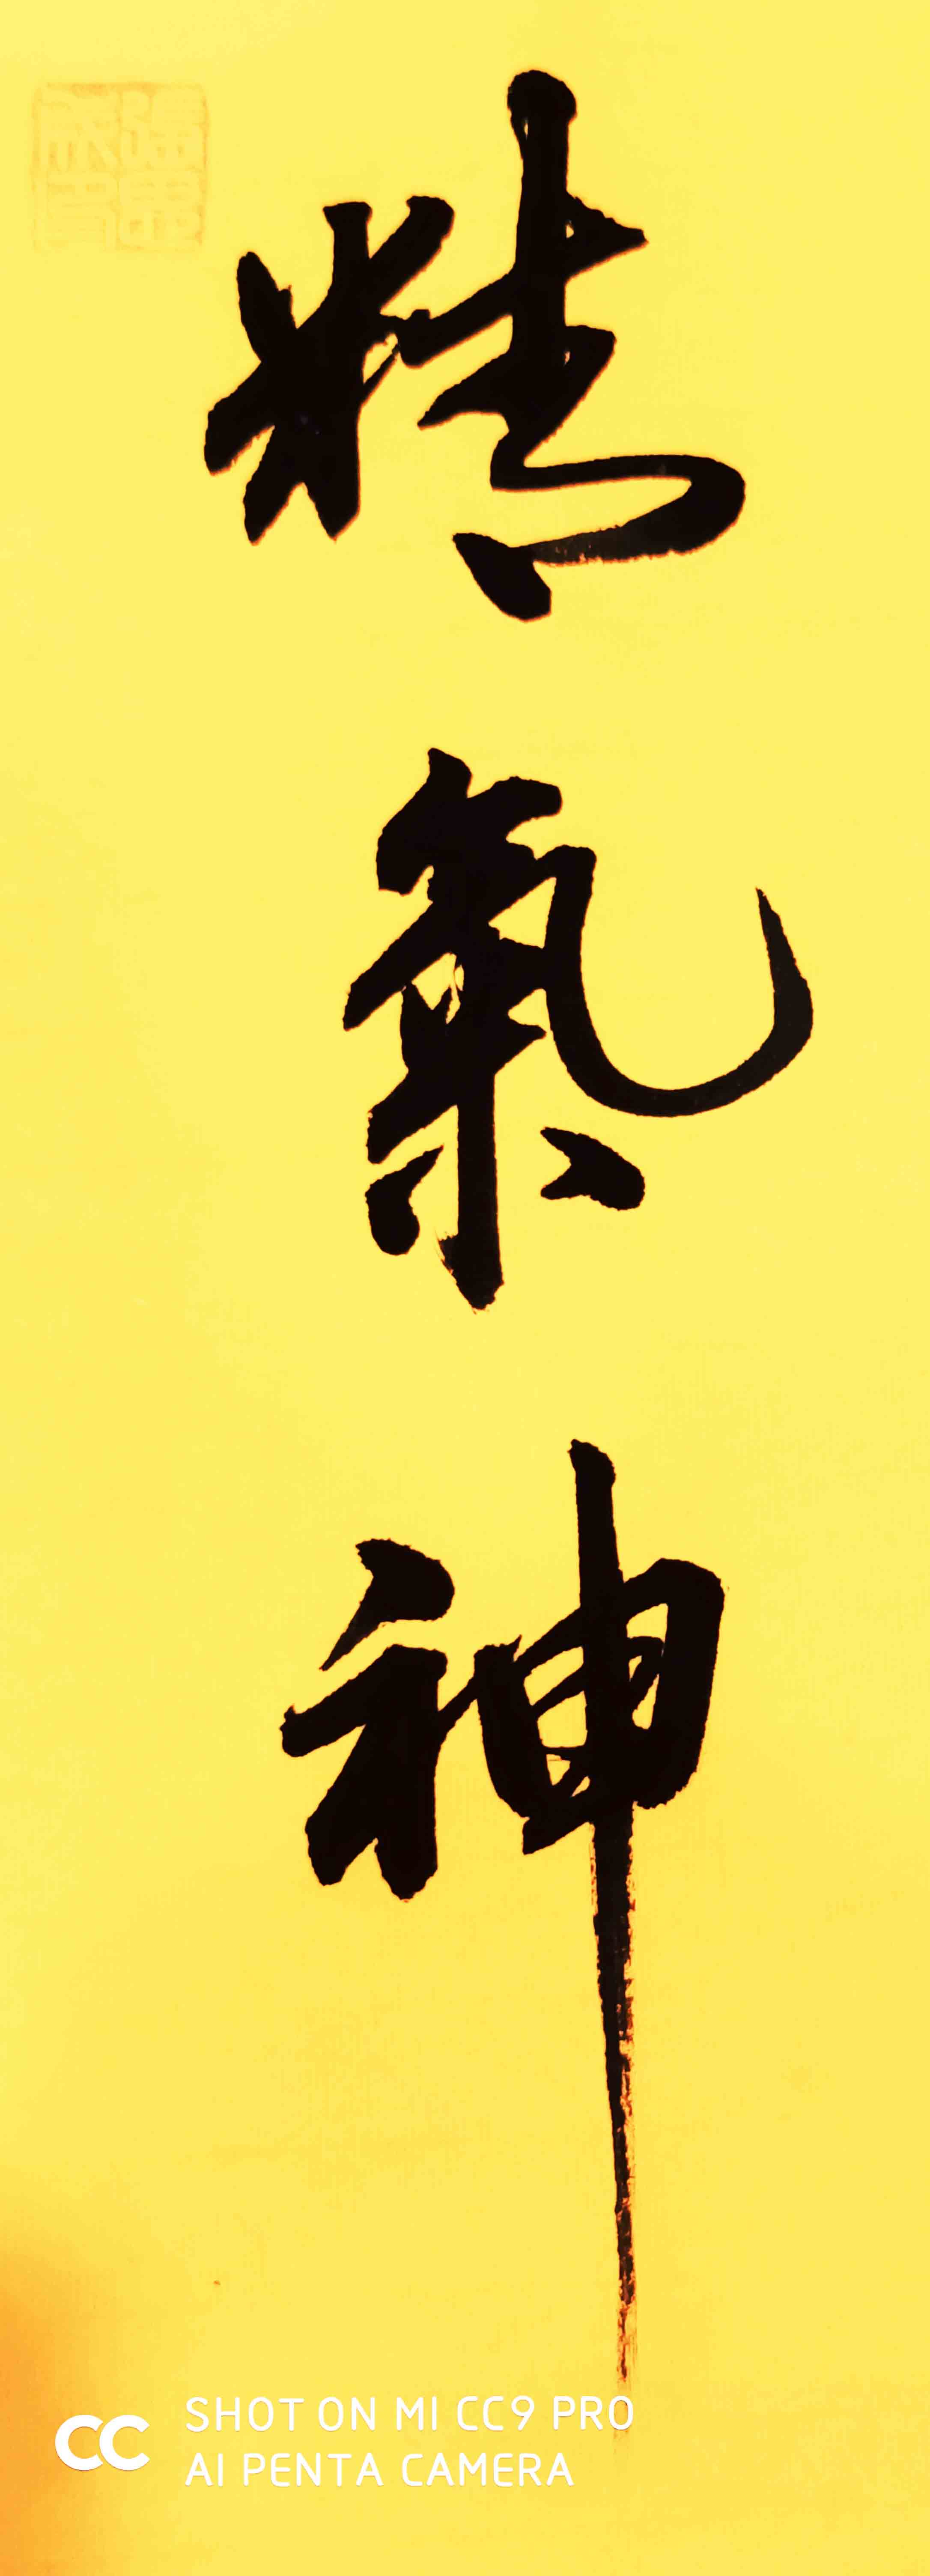 精氣神
CC
SHOT ON MI CC9 PRO
AI PENTA CAMERA